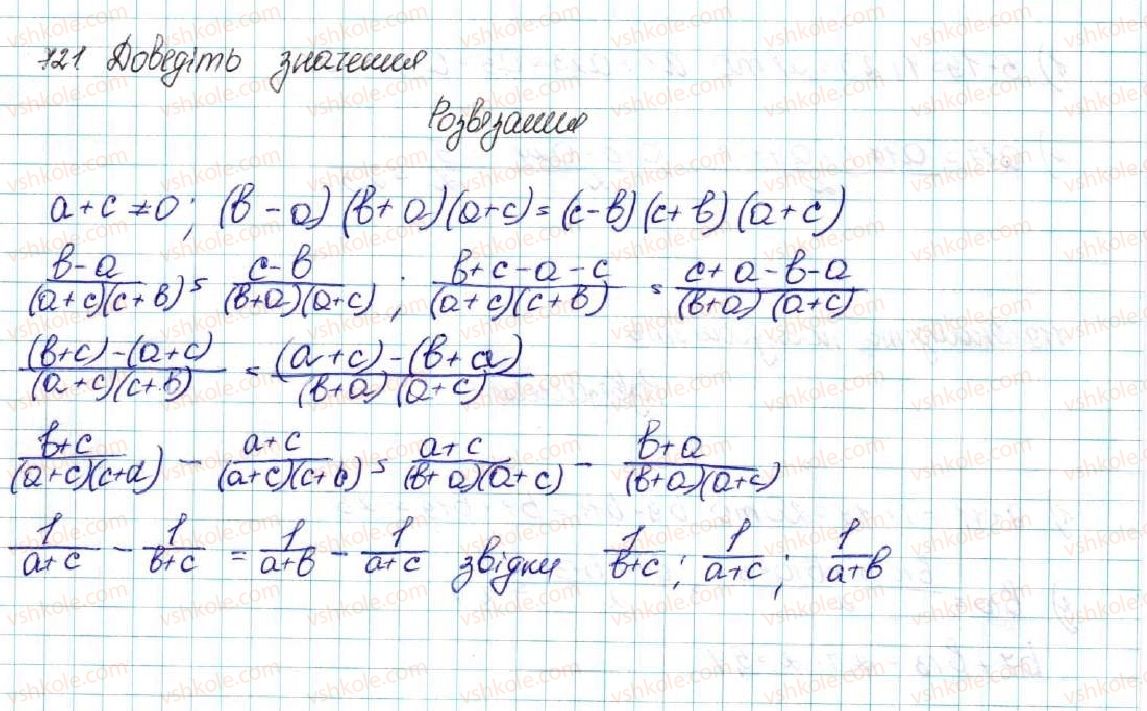 721 Доведіть значення
Розвезання
a + c ≠ 0; (b - a)(b + a)(a + c) = (c - b)(c + b)(a + c)
(b - a)/((a + c)(c + b)) = (c - b)/((b + a)(a + c)); (b + c - a - c)/((a + c)(c + b)) = (c + a - b - a)/((b + a)(a + c))
((b + c) - (a + c))/((a + c)(c + b)) = ((a + c) - (b + a))/((b + a)(a + c))
(b + c)/((a + c)(c + a)) - (a + c)/((a + c)(c + b)) = (a + c)/((b + a)(a + c)) - (b + a)/((b + a)(a + c))
1/(a + c) - 1/(b + c) = 1/(a + b) - 1/(a + c) звідки 1/(b + c); 1/(a + c); 1/(a + b)